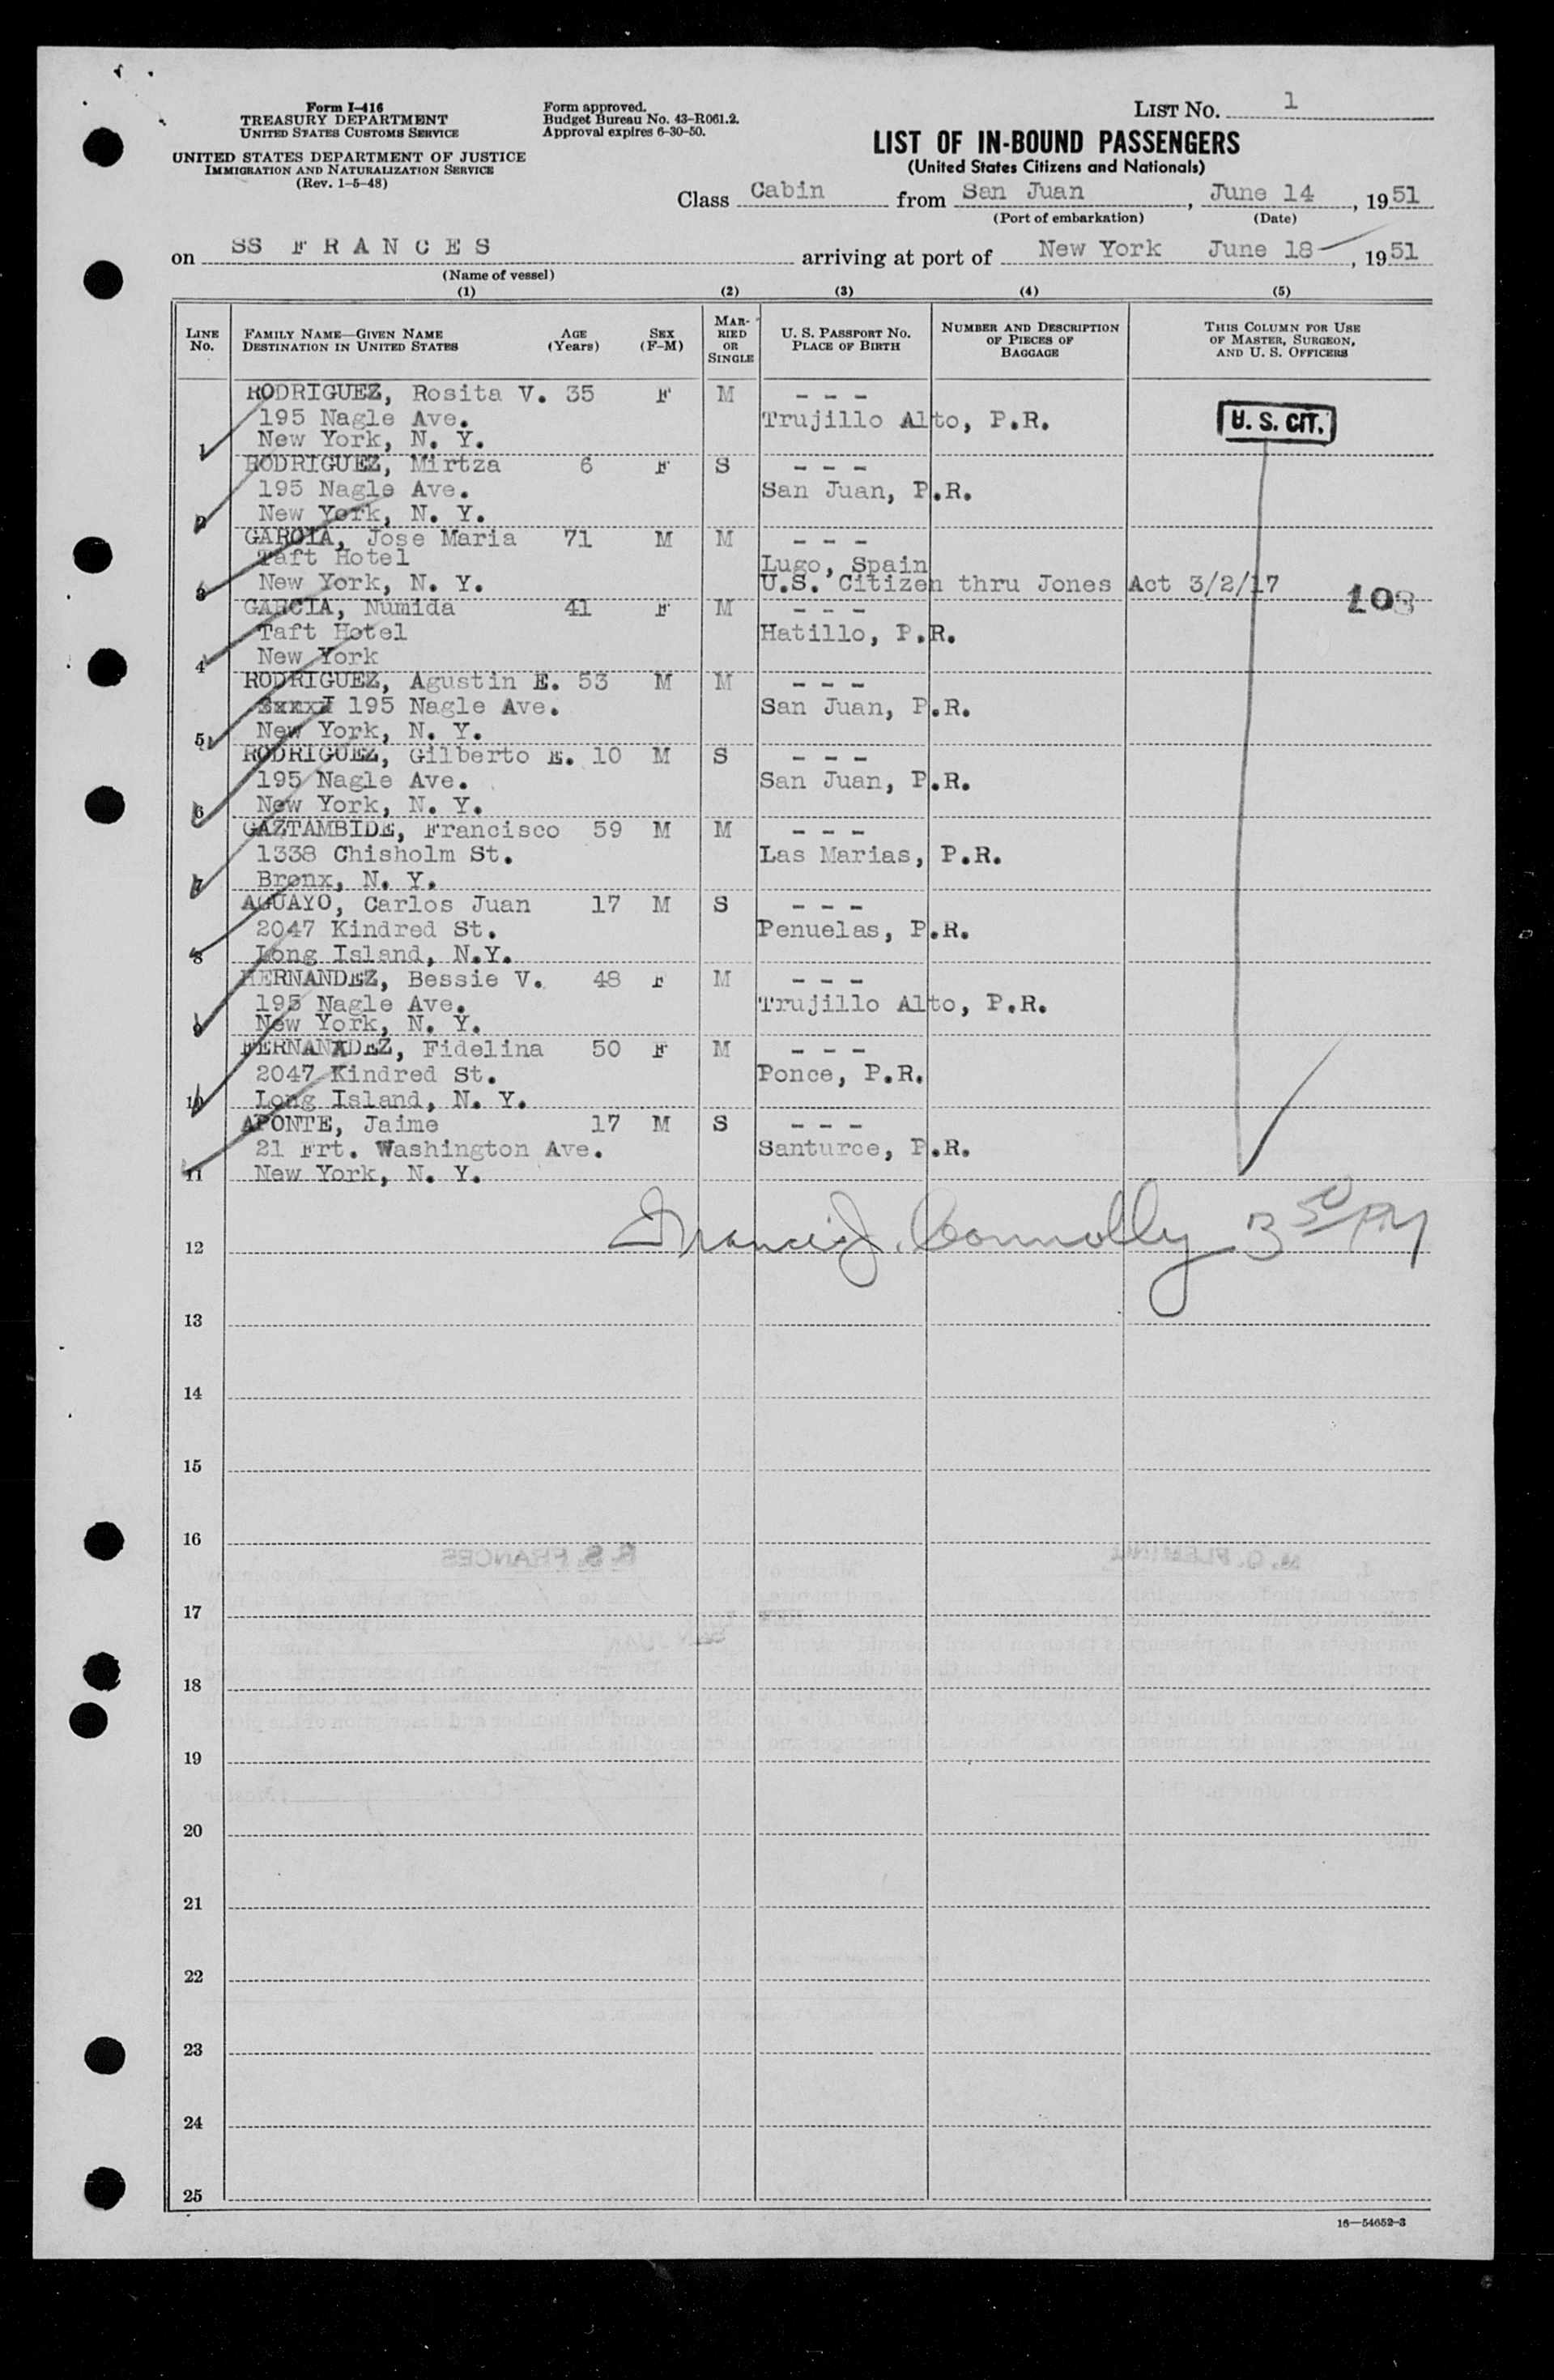 Form I-416
TREASURY DEPARTMENT
UNITED STATES CUSTOMS SERVICE
UNITED STATES DEPARTMENT OF JUSTICE
IMMIGRATION AND NATURALIZATION SERVICE
(Rev. 1-5-48)
Form approved.
Budget Bureau No. 43-R061.2.
Approval expires 6-30-50.
LIST No. 1
LIST OF IN-BOUND PASSENGERS
(United States Citizens and Nationals)
Class Cabin from San Juan, June 14, 1951
(Port of embarkation) (Date)
on SS FRANCES arriving at port of New York June 18, 1951
(Name of vessel)
(1) (2) (3) (4) (5)
LINE No. FAMILY NAME—GIVEN NAME DESTINATION IN UNITED STATES AGE (Years) SEX (F-M) MARRIED OR SINGLE U. S. PASSPORT NO. PLACE OF BIRTH NUMBER AND DESCRIPTION OF PIECES OF BAGGAGE THIS COLUMN FOR USE OF MASTER, SURGEON, AND U. S. OFFICERS
RODRIGUEZ, Rosita V. 35 F M - - -
195 Nagle Ave. Trujillo Alto, P.R. U. S. CIT.
1 New York, N. Y.
RODRIGUEZ, Mirtza 6 F S - - -
195 Nagle Ave. San Juan, P.R.
2 New York, N. Y.
GARCIA, Jose Maria 71 M M - - -
Taft Hotel Lugo, Spain
3 New York, N. Y. U.S. Citizen thru Jones Act 3/2/17
108
GARCIA, Numida 41 F M - - -
Taft Hotel Hatillo, P.R.
4 New York
RODRIGUEZ, Agustin E. 53 M M - - -
195 Nagle Ave. San Juan, P.R.
5 New York, N. Y.
RODRIGUEZ, Gilberto E. 10 M S - - -
195 Nagle Ave. San Juan, P.R.
6 New York, N. Y.
GAZTAMBIDE, Francisco 59 M M - - -
1338 Chisholm St. Las Marias, P.R.
7 Bronx, N. Y.
AGUAYO, Carlos Juan 17 M S - - -
2047 Kindred St. Penuelas, P.R.
8 Long Island, N.Y.
HERNANDEZ, Bessie V. 48 F M - - -
195 Nagle Ave. Trujillo Alto, P.R.
9 New York, N. Y.
FERNANXDEZ, Fidelina 50 F M - - -
2047 Kindred St. Ponce, P.R.
10 Long Island, N. Y.
APONTE, Jaime 17 M S - - -
21 Frt. Washington Ave. Santurce, P.R.
11 New York, N. Y.
12 Francis J. Connolly 3 50 PM
13
14
15
16
S. S. FRANCES M. O. FLEMING
17
SAN JUAN
18
19
20
21
22
23
24
25
16—54652-3